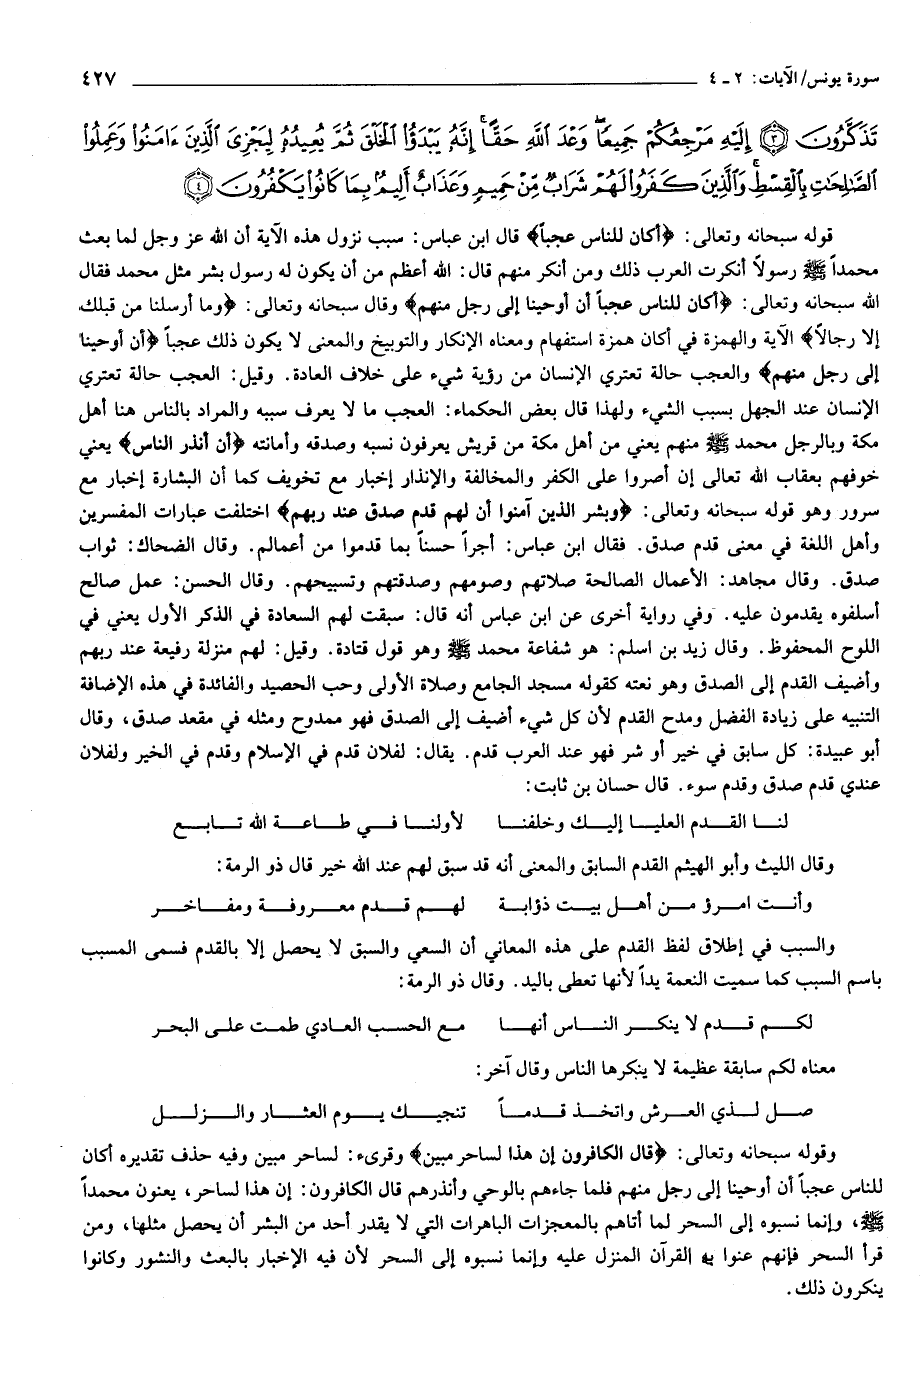 سورة يونس/ الآيات: ٢ ـ ٤ ٤٢٧
تَذَكَّرُونَ ﴿٣﴾ إِلَيْهِ مَرْجِعُكُمْ جَمِيعًا وَعْدَ اللَّهِ حَقًّا إِنَّهُ يَبْدَؤُا الْخَلْقَ ثُمَّ يُعِيدُهُ لِيَجْزِيَ الَّذِينَ ءَامَنُوا وَعَمِلُوا
الصَّالِحَاتِ بِالْقِسْطِ وَالَّذِينَ كَفَرُوا لَهُمْ شَرَابٌ مِّنْ حَمِيمٍ وَعَذَابٌ أَلِيمٌ بِمَا كَانُوا يَكْفُرُونَ ﴿٤﴾
قوله سبحانه وتعالى: ﴿أكان للناس عجباً﴾ قال ابن عباس: سبب نزول هذه الآية أن الله عز وجل لما بعث
محمداً ﷺ رسولاً أنكرت العرب ذلك ومن أنكر منهم قال: الله أعظم من أن يكون له رسول بشر مثل محمد فقال
الله سبحانه وتعالى: ﴿أكان للناس عجباً أن أوحينا إلى رجل منهم﴾ وقال سبحانه وتعالى: ﴿وما أرسلنا من قبلك
إلا رجالاً﴾ الآية والهمزة في أكان همزة استفهام ومعناه الإنكار والتوبيخ والمعنى لا يكون ذلك عجباً ﴿أن أوحينا
إلى رجل منهم﴾ والعجب حالة تعتري الإنسان من رؤية شيء على خلاف العادة. وقيل: العجب حالة تعتري
الإنسان عند الجهل بسبب الشيء ولهذا قال بعض الحكماء: العجب ما لا يعرف سببه والمراد بالناس هنا أهل
مكة وبالرجل محمد ﷺ منهم يعني من أهل مكة من قريش يعرفون نسبه وصدقه وأمانته ﴿أن أنذر الناس﴾ يعني
خوفهم بعقاب الله تعالى إن أصروا على الكفر والمخالفة والإنذار إخبار مع تخويف كما أن البشارة إخبار مع
سرور وهو قوله سبحانه وتعالى: ﴿وبشر الذين آمنوا أن لهم قدم صدق عند ربهم﴾ اختلفت عبارات المفسرين
وأهل اللغة في معنى قدم صدق. فقال ابن عباس: أجراً حسناً بما قدموا من أعمالم. وقال الضحاك: ثواب
صدق. وقال مجاهد: الأعمال الصالحة صلاتهم وصومهم وصدقتهم وتسبيحهم. وقال الحسن: عمل صالح
أسلفوه يقدمون عليه. وفي رواية أخرى عن ابن عباس أنه قال: سبقت لهم السعادة في الذكر الأول يعني في
اللوح المحفوظ. وقال زيد بن اسلم: هو شفاعة محمد ﷺ وهو قول قتادة. وقيل: لهم منزلة رفيعة عند ربهم
وأضيف القدم إلى الصدق وهو نعته كقوله مسجد الجامع وصلاة الأولى وحب الحصيد والفائدة في هذه الإضافة
التنبيه على زيادة الفضل ومدح القدم لأن كل شيء أضيف إلى الصدق فهو ممدوح ومثله في مقعد صدق، وقال
أبو عبيدة: كل سابق في خير أو شر فهو عند العرب قدم. يقال: لفلان قدم في الإسلام وقدم في الخير ولفلان
عندي قدم صدق وقدم سوء. قال حسان بن ثابت:
لنا القدم العليا إليك وخلفنا لأولنا في طاعة الله تابع
وقال الليث وأبو الهيثم القدم السابق والمعنى أنه قد سبق لهم عند الله خير قال ذو الرمة:
وأنت امرؤ من أهل بيت ذؤابة لهم قدم معروفة ومفاخر
والسبب في إطلاق لفظ القدم على هذه المعاني أن السعي والسبق لا يحصل إلا بالقدم فسمى المسبب
باسم السبب كما سميت النعمة يداً لأنها تعطى باليد. وقال ذو الرمة:
لكم قدم لا ينكر الناس أنها مع الحسب العادي طمت على البحر
معناه لكم سابقة عظيمة لا ينكرها الناس وقال آخر:
صل لذي العرش واتخذ قدماً تنجيك يوم العثار والزلل
وقوله سبحانه وتعالى: ﴿قال الكافرون إن هذا لساحر مبين﴾ وقرىء: لساحر مبين وفيه حذف تقديره أكان
للناس عجباً أن أوحينا إلى رجل منهم فلما جاءهم بالوحي وأنذرهم قال الكافرون: إن هذا لساحر، يعنون محمداً
ﷺ، وإنما نسبوه إلى السحر لما أتاهم بالمعجزات الباهرات التي لا يقدر أحد من البشر أن يحصل مثلها، ومن
قرأ السحر فإنهم عنوا به القرآن المنزل عليه وإنما نسبوه إلى السحر لأن فيه الإخبار بالبعث والنشور وكانوا
ينكرون ذلك.